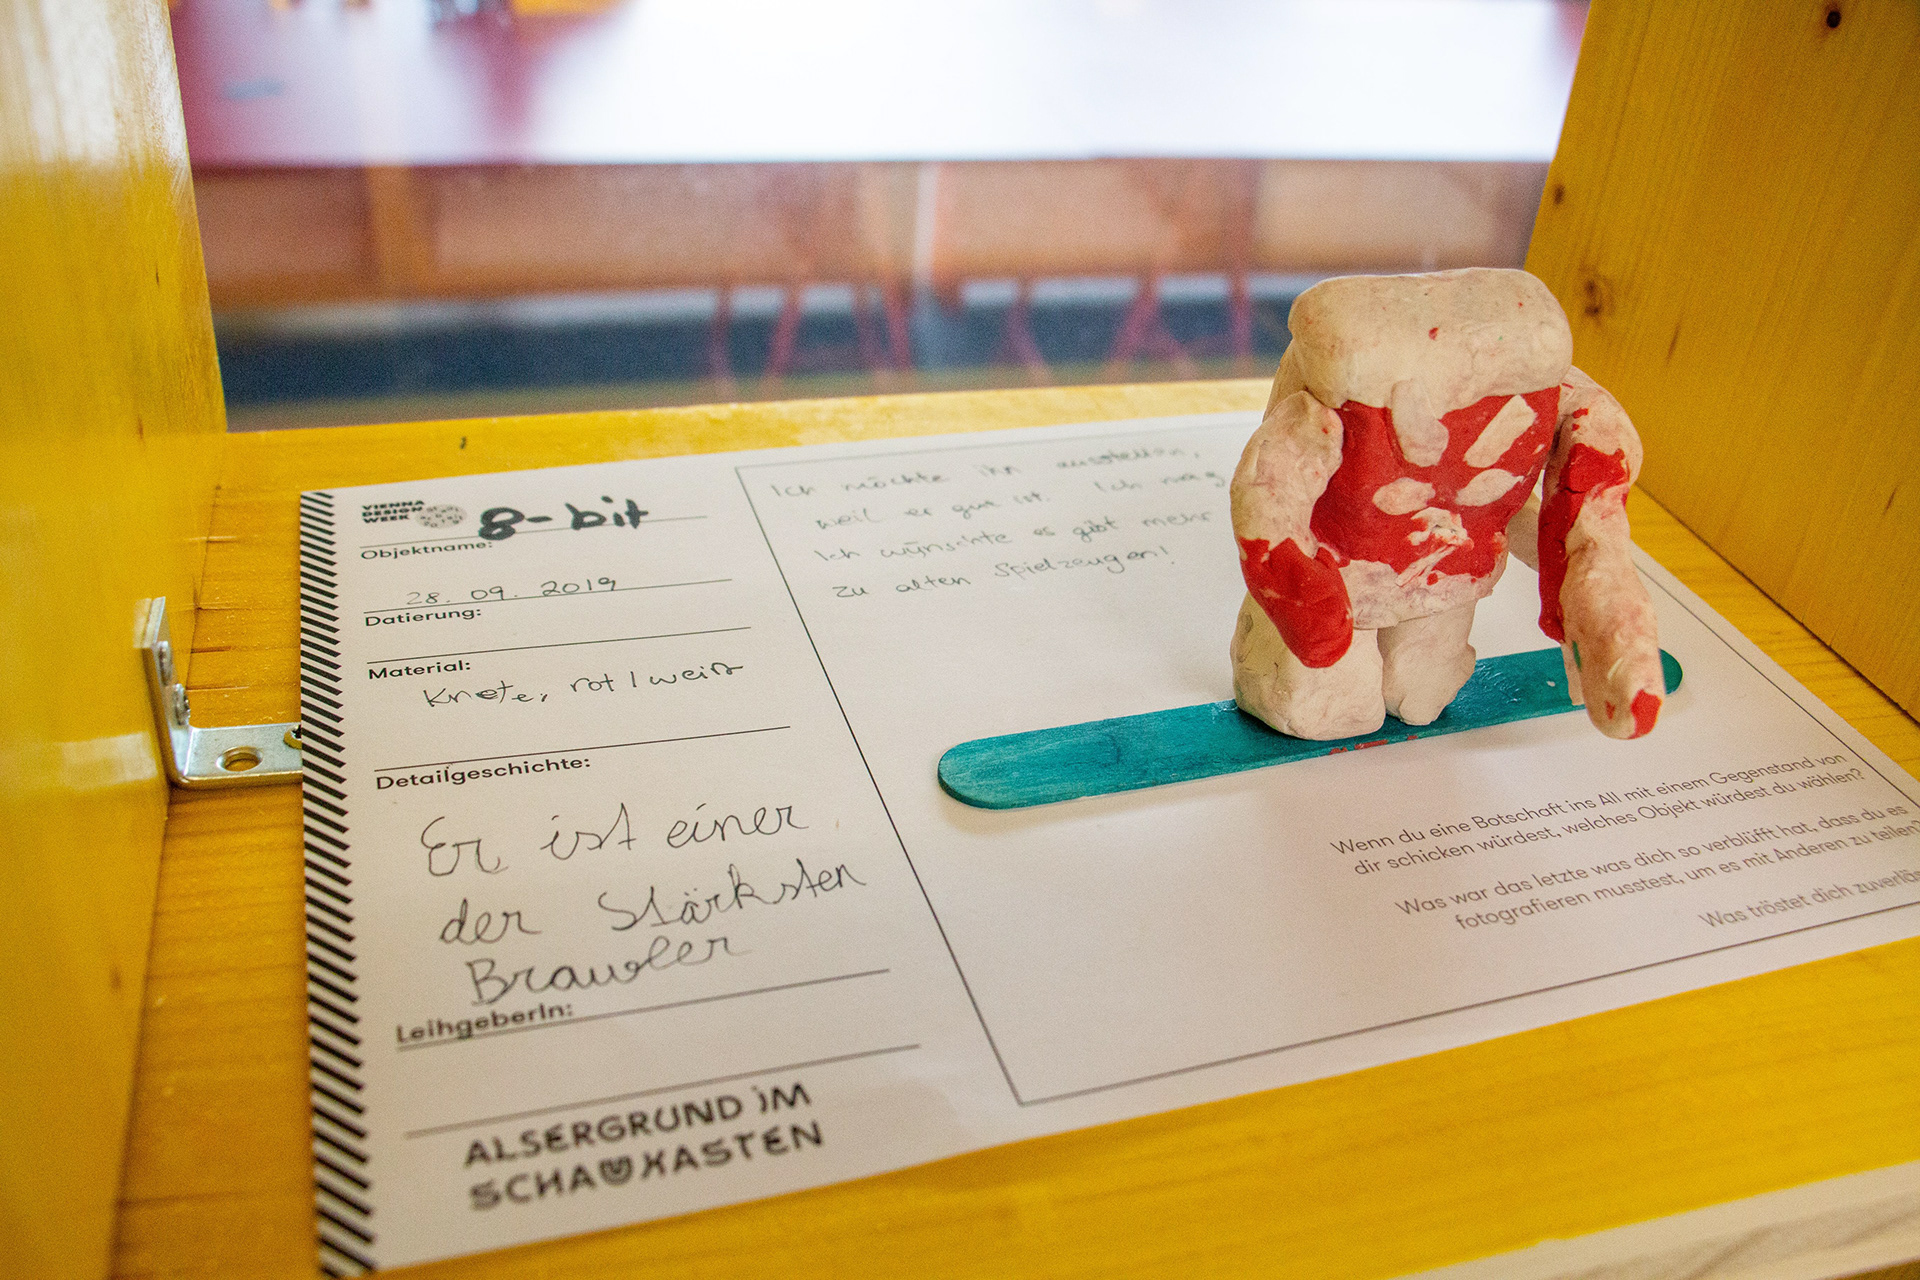 VIENNA
DESIGN
WEEK
8-bit
Objektname:
28. 09. 2019
Datierung:
Material:
Knete, rot / weiß
Detailgeschichte:
Er ist einer
der Stärksten
Brawler
LeihgeberIn:
ALSERGRUND IM
SCHAUKASTEN
Ich möchte ihn ausstellen,
weil er gut ist. Ich mag
Ich wünschte es gibt mehr
zu alten Spielzeugen!
Wenn du eine Botschaft ins All mit einem Gegenstand von
dir schicken würdest, welches Objekt würdest du wählen?
Was war das letzte was dich so verblüfft hat, dass du es
fotografieren musstest, um es mit Anderen zu teilen?
Was tröstet dich